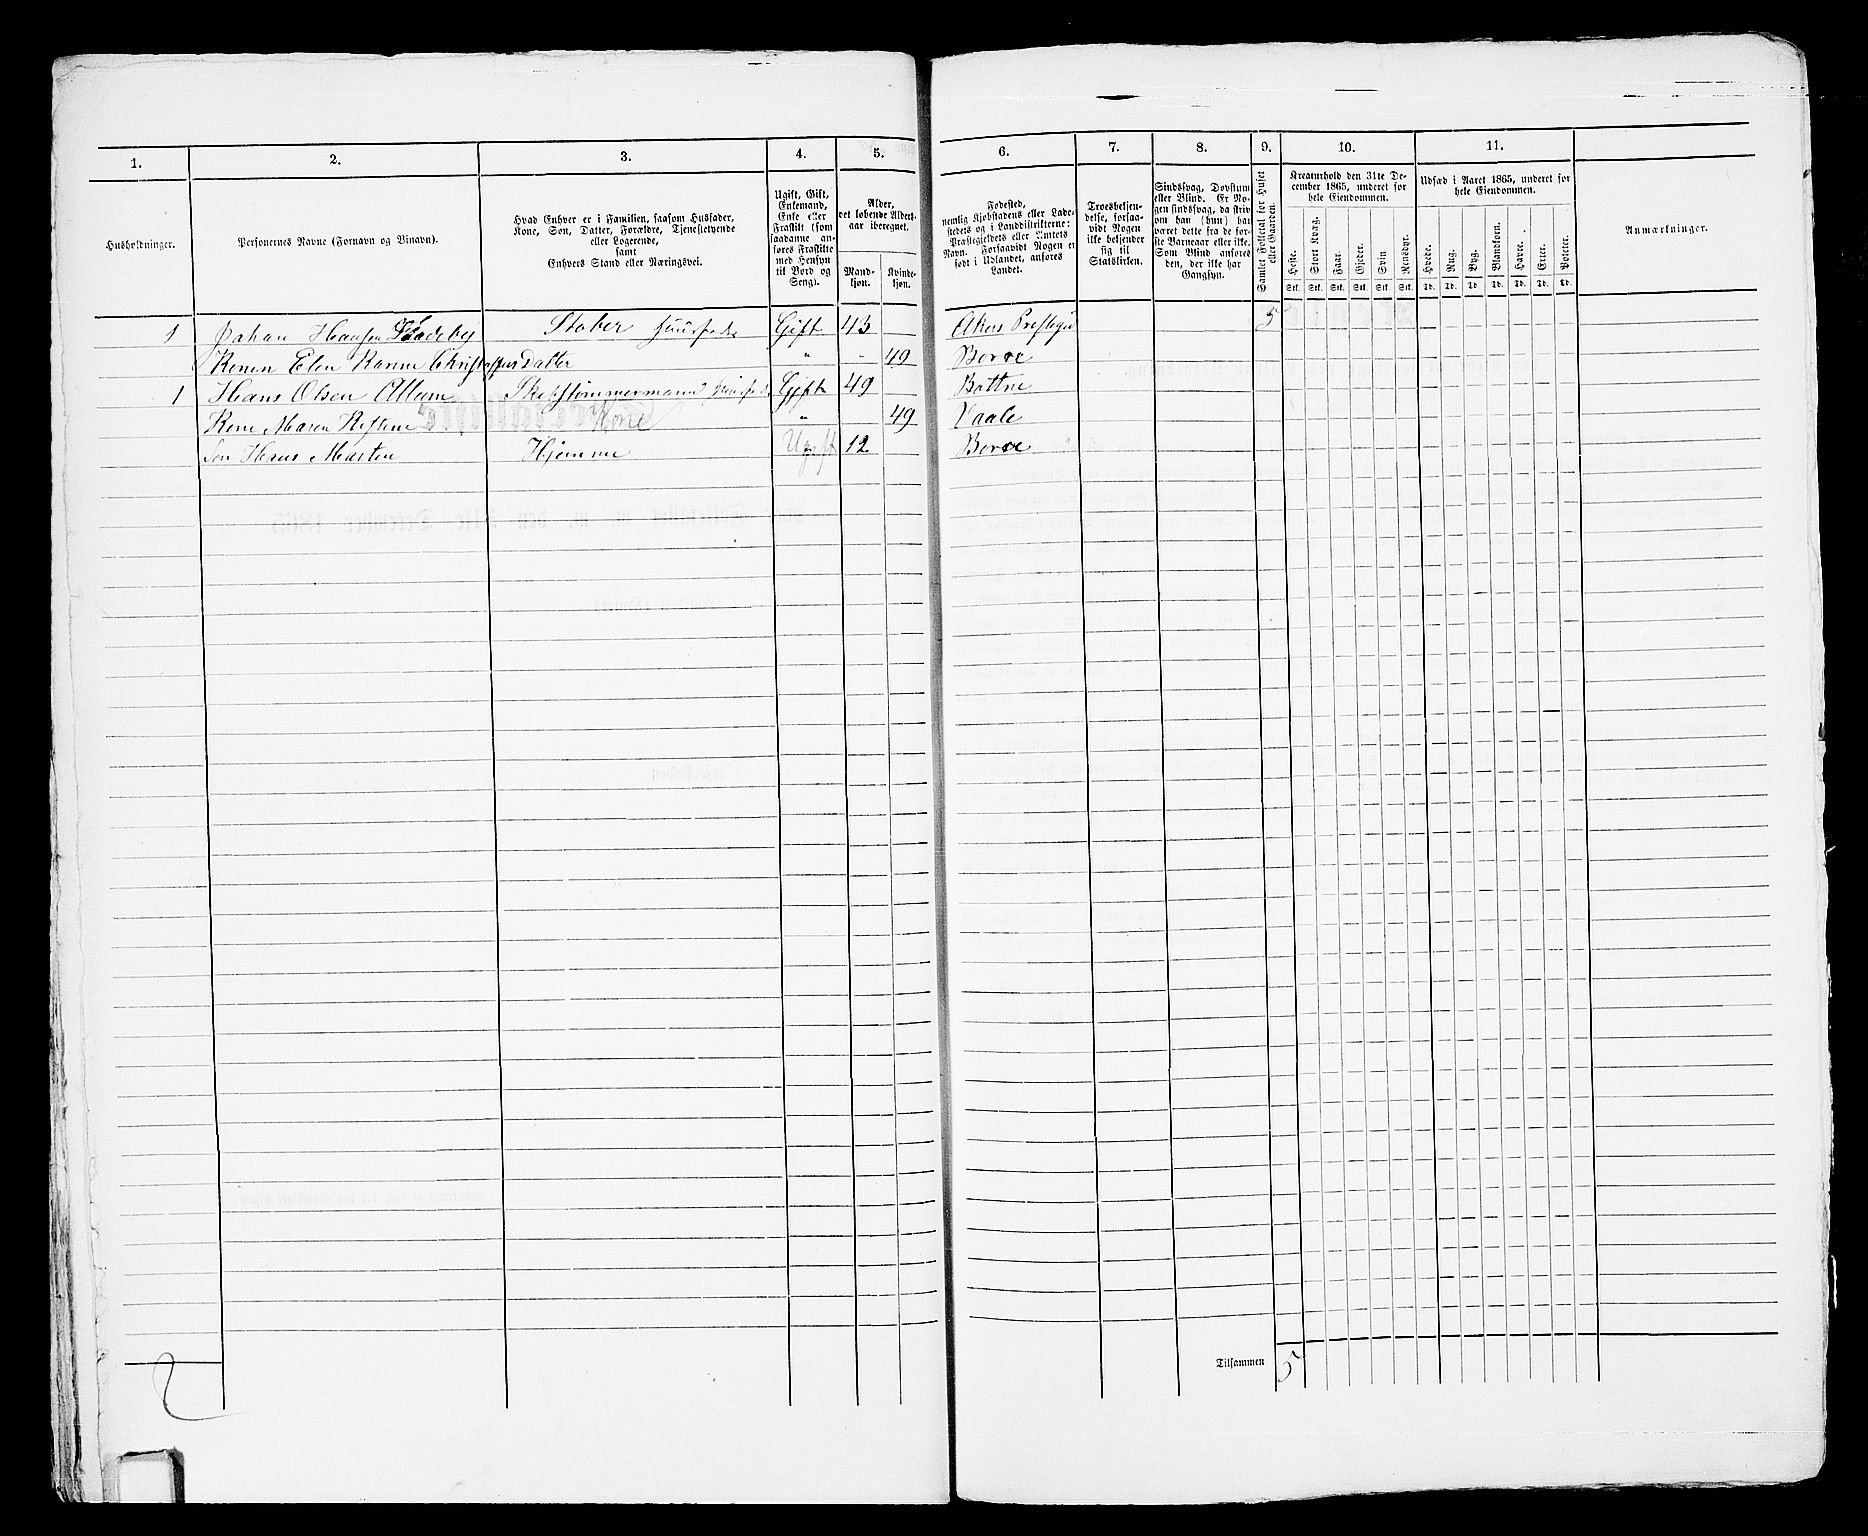 1. 2. 3. 4. 5. 6. 7. 8. 9. 10. 11.
Husholdninger.
Personernes Navne (Fornavn og Binavn).
Hvad Enhver er i Familien, saasom Husfader,
Kone, Søn, Datter, Forældre, Tjenestetyende
eller Logerende,
samt
Enhvers Stand eller Næringsvei.
Ugift, Gift,
Enkemand,
Enke eller
Fraskilt (som
saadanne an-
føres Fraskilte
med Hensyn
til Bord og
Seng).
Alder,
det løbende Alders-
aar iberegnet.
Mand-
kjøn.
Kvinde-
kjøn.
Fødested,
nemlig Kjøbstadens eller Lade-
stedets og i Landdistrikterne:
Præstegjeldets eller Amtets
Navn. Forsaavidt Nogen er
født i Udlandet, anføres
Landet.
Troesbekjen-
delse, forsaa-
vidt Nogen
ikke bekjender
sig til
Statskirken.
Sindssvag, Døvstum
eller Blind. Er No-
gen sindssvag, da skriv
om han (hun) har
været dette fra de før-
ste Barneaar eller ikke.
Som Blind anføres
den, der ikke har
Gangsyn.
Samlet Folketal for Huset
eller Gaarden.
Kreaturhold den 31te De-
cember 1865, underet for
hele Eiendommen.
Heste. Stort Kvæg. Faar. Gjeder. Svin Rensdyr.
Stk. Stk. Stk. Stk. Stk. Stk.
Udsæd i Aaret 1865, underet for
hele Eiendommen.
Hvede. Rug. Byg. Blandkorn. Havre. Erter. Poteter.
Td. Td. Td. Td. Td. Td. Td.
Anmærkninger.
1 Johan Hansen Gift 43 Akers 5
Konen Elen Christoffersdatter " 49 Borre
1 Hans Olsen Allum Skibstømmermand Gift 49 Bottne
Kone Maren Kone " 49 Vaale
Søn Hans Martin Hjemme Ugift 12 Borre
Tilsammen 5
2